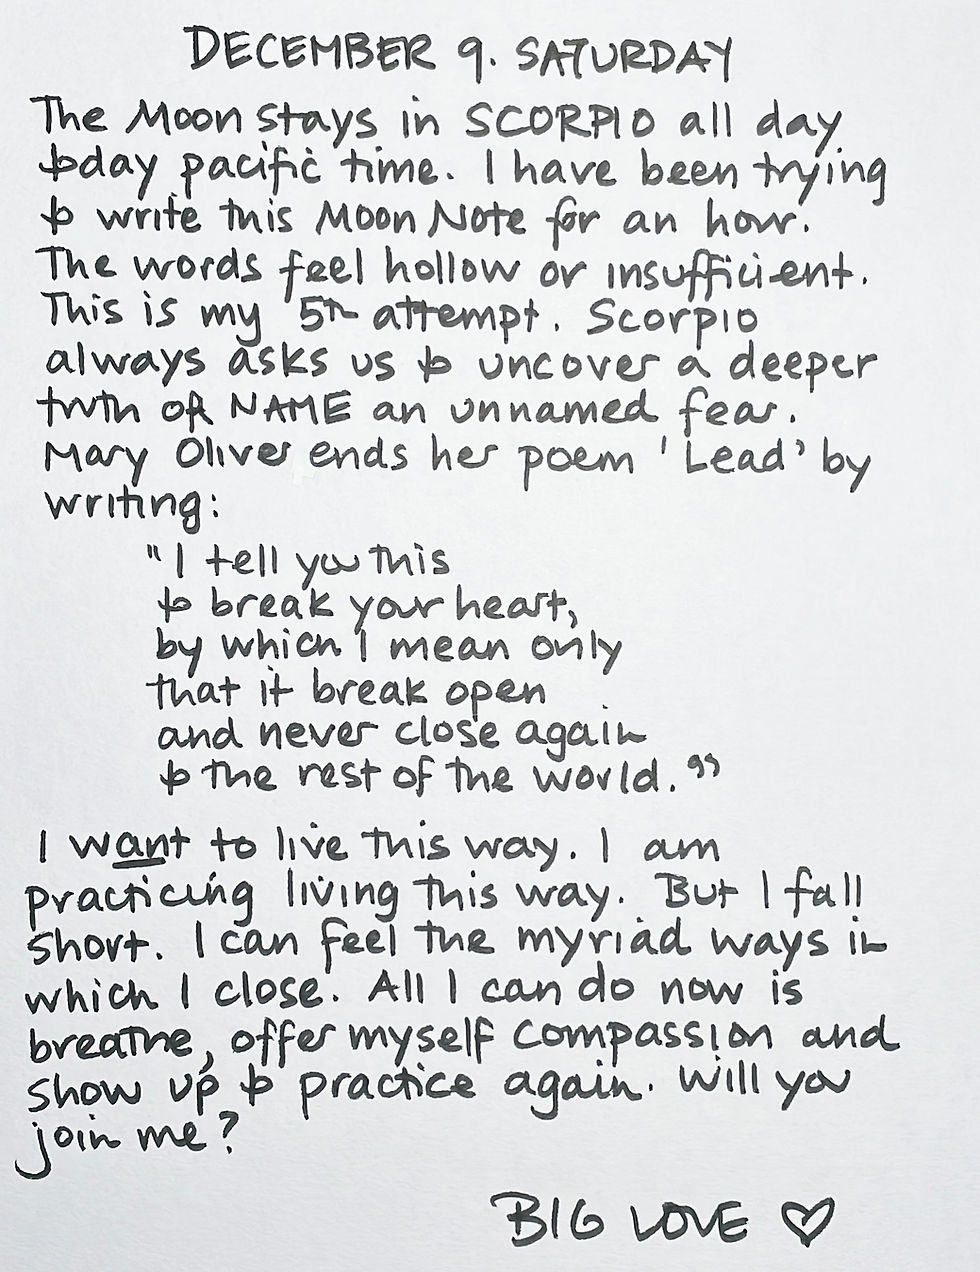 DECEMBER 9. SATURDAY
The Moon stays in SCORPIO all day
today pacific time. I have been trying
to write this Moon Note for an hour.
The words feel hollow or insufficient.
This is my 5th attempt. Scorpio
always asks us to uncover a deeper
truth OR NAME an unnamed fear.
Mary Oliver ends her poem 'Lead' by
writing:
"I tell you this
to break your heart,
by which I mean only
that it break open
and never close again
to the rest of the world."
I want to live this way. I am
practicing living this way. But I fall
short. I can feel the myriad ways in
which I close. All I can do now is
breathe, offer myself compassion and
show up to practice again. Will you
join me?
BIG LOVE ♡